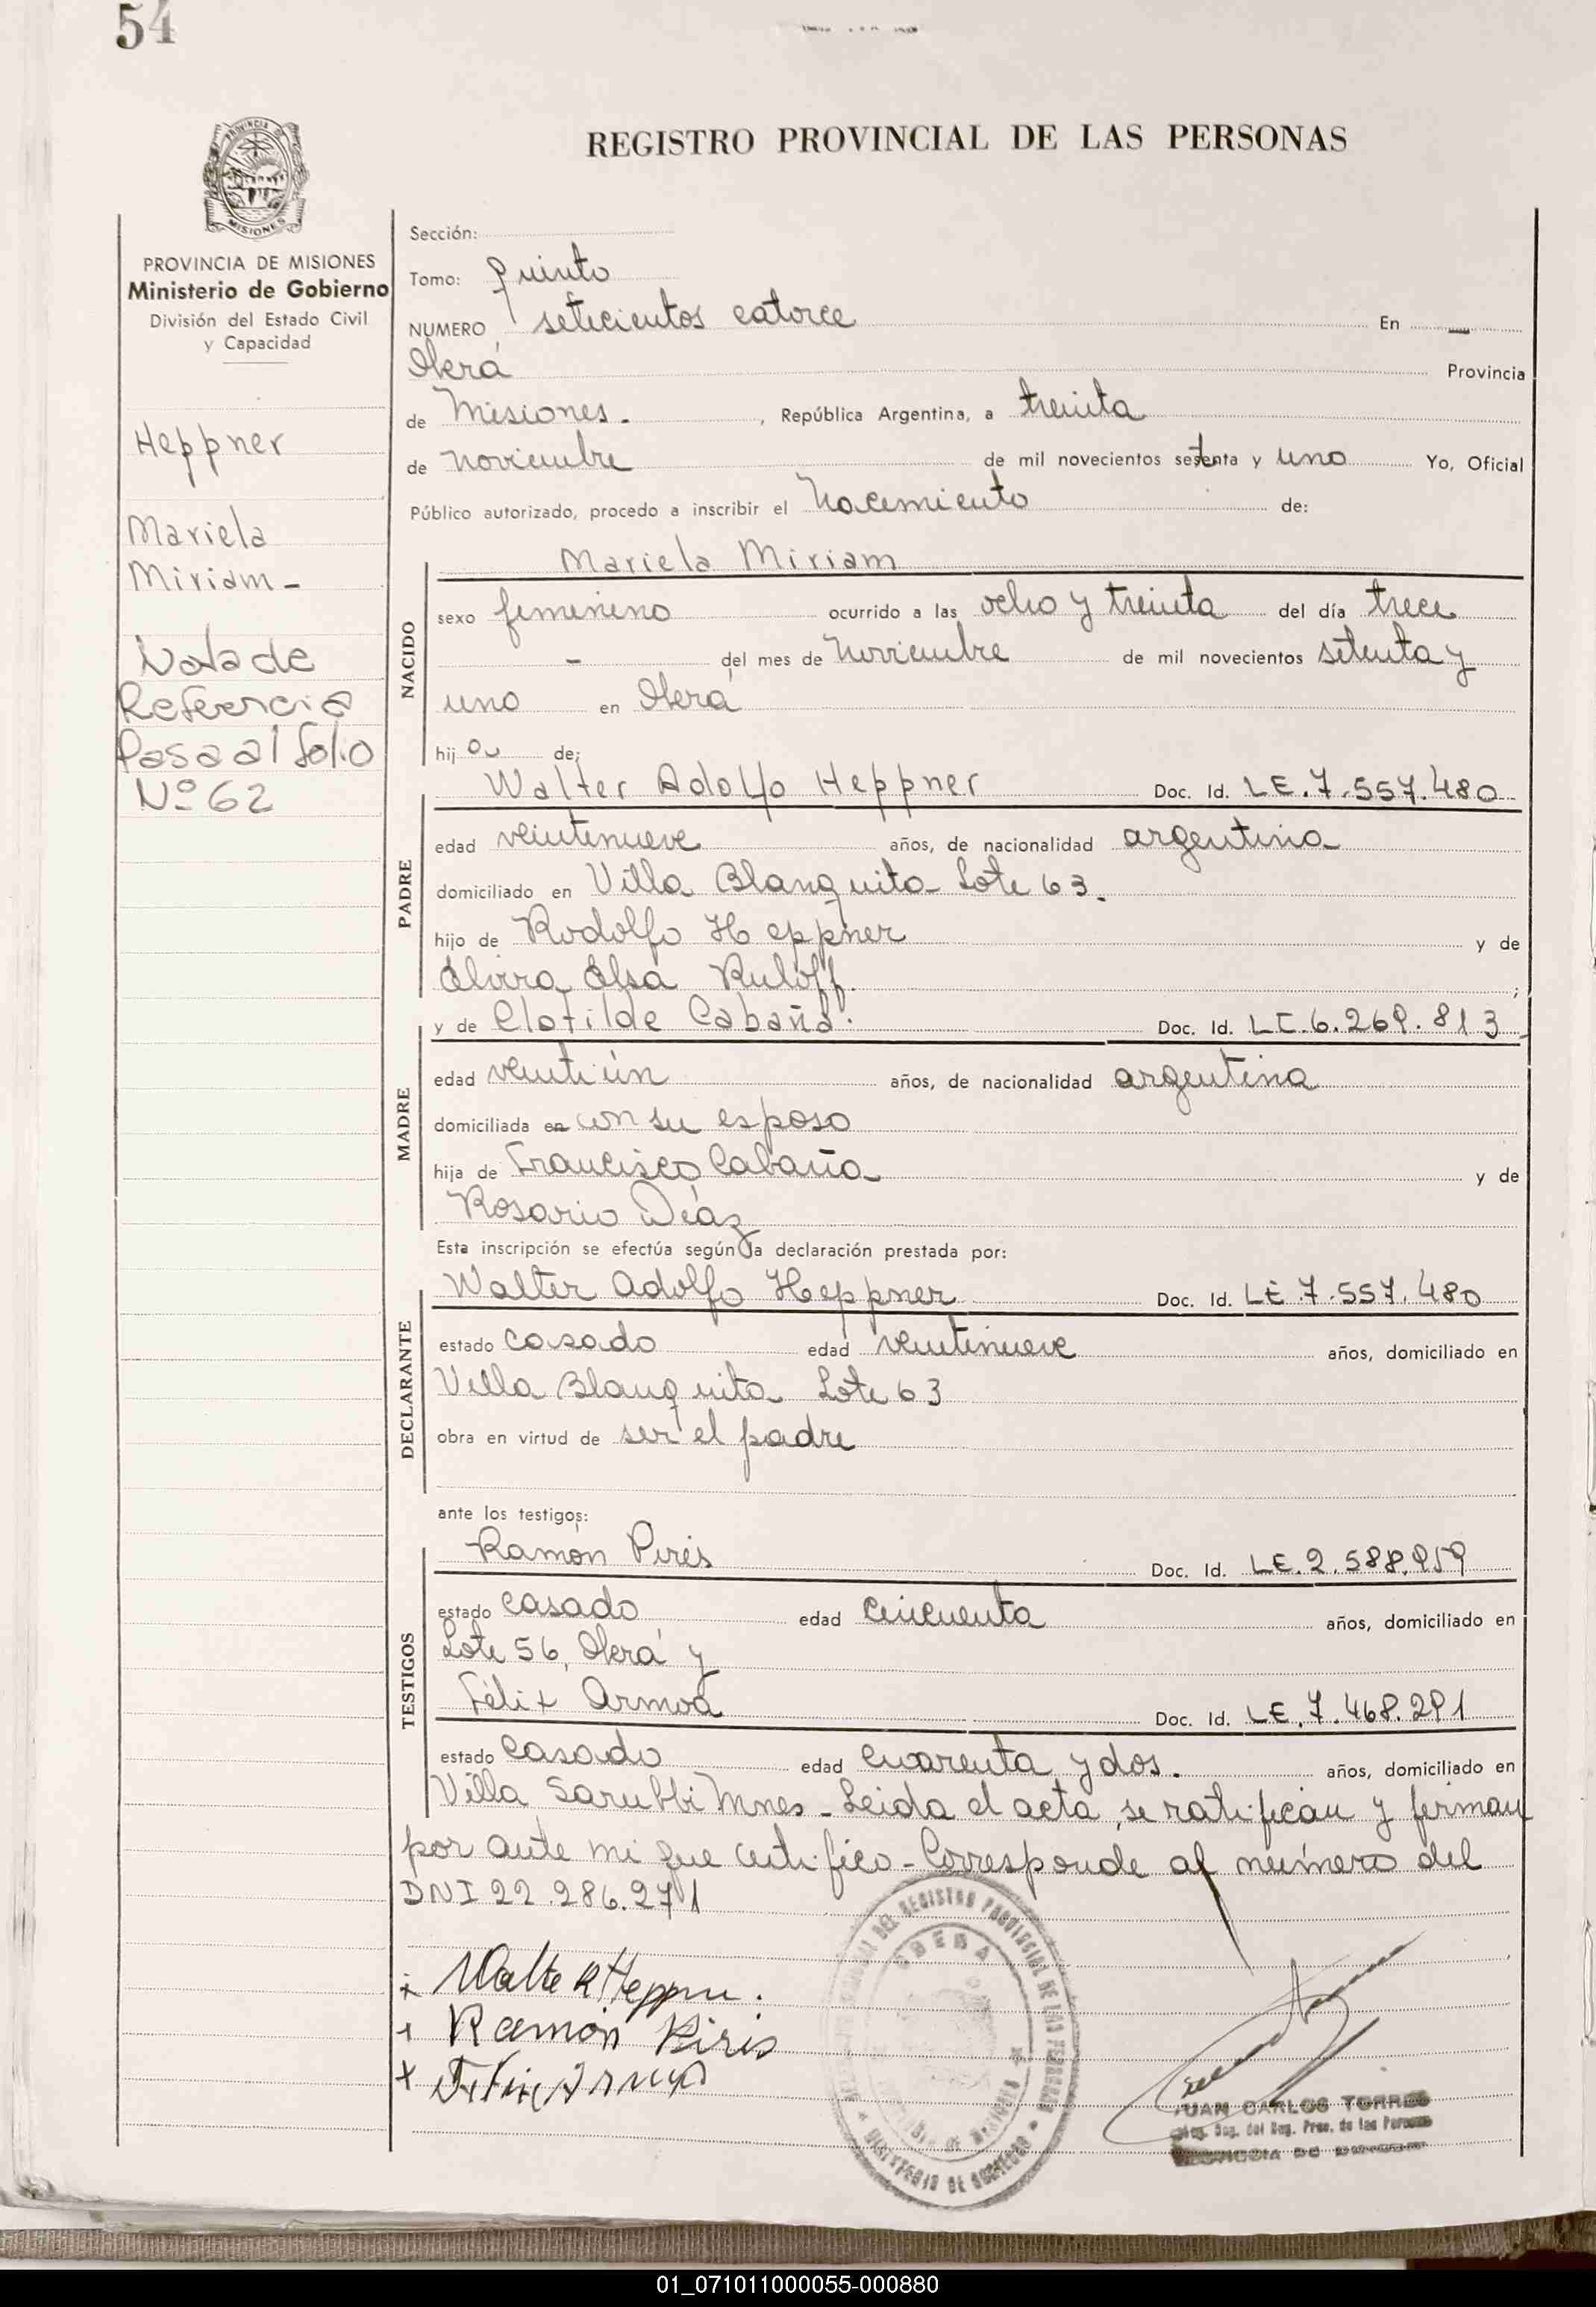 54
REGISTRO PROVINCIAL DE LAS PERSONAS
MISIONES
PROVINCIA DE MISIONES
Ministerio de Gobierno
División del Estado Civil
y Capacidad
Heppner
Mariela
Miriam -
Nota de
Referencia
Pasa al folio
Nº 62
Sección:
Tomo: quinto
NUMERO setecientos catorce En —
Oberá Provincia
de Misiones. , República Argentina, a treinta
de noviembre de mil novecientos setenta y uno Yo, Oficial
Público autorizado, procedo a inscribir el Nacimiento de:
NACIDO
Mariela Miriam
sexo femenino ocurrido a las ocho y treinta del día trece
- del mes de Noviembre de mil novecientos setenta y
uno en Oberá
hij a de:
PADRE
Walter Adolfo Heppner Doc. Id. LE. 7.557.480
edad veintinueve años, de nacionalidad argentina
domiciliado en Villa Blanquita - Lote 63.
hijo de Rodolfo Heppner y de
Elvira Elsa Ruloff. ;
MADRE
y de Clotilde Cabaña. Doc. Id. LC. 6.269.813
edad veintiún años, de nacionalidad argentina
domiciliada en con su esposo
hija de Francisco Cabaña y de
Rosario Díaz
Esta inscripción se efectúa según la declaración prestada por:
DECLARANTE
Walter Adolfo Heppner Doc. Id. LE. 7.557.480
estado casado edad veintinueve años, domiciliado en
Villa Blanquita Lote 63
obra en virtud de ser el padre
ante los testigos:
TESTIGOS
Ramón Pirés Doc. Id. LE. 2.588.959
estado casado edad cincuenta años, domiciliado en
Lote 56, Oberá y
Félix Armoa Doc. Id. LE. 7.468.291
estado casado edad cuarenta y dos. años, domiciliado en
Villa Sarubbi Mnes - Leida el acta, se ratifican y firman
por ante mi que certifico - Corresponde al número del
DNI 22.286.271
+ Walter Heppner.
+ Ramón Piris
x Felix Armoa
DEL REGISTRO PROVINCIAL DE LAS PERSONAS
OBERA
MINISTERIO DE GOBIERNO
JUAN CARLOS TORRES
del Reg. Prov. de las Personas
01_071011000055-000880